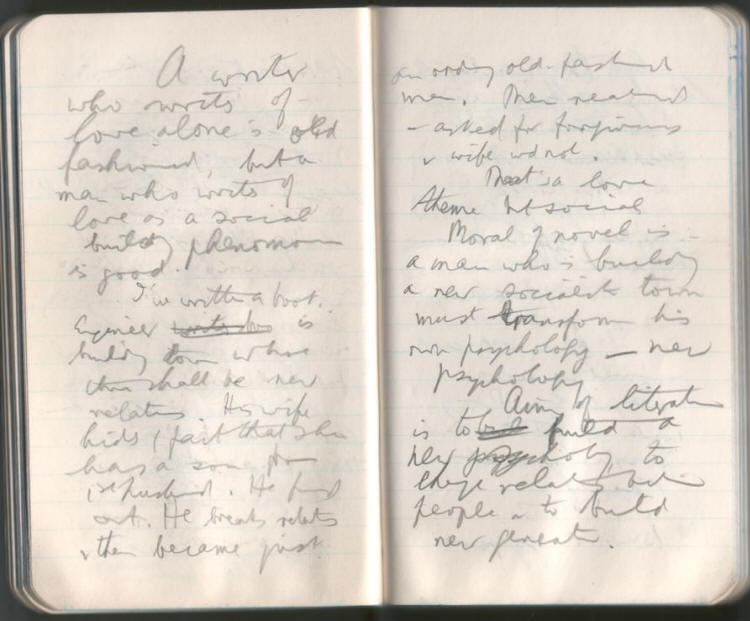 A writer
who writs of
love alone is old
fashioned, but a
man who writs of
love as a social
buildg phenomon
is good.
I've writtn a book.
Engineer is
buildg town where
there shall be new
relatns. His wife
hids fact that she
has a son from
1st husband. He find
out. He breaks relatns
& then became just
an ordiny old-fashiond
man. Then
– asked for forgivness
& wife wd not.
That's a love
theme but social
Moral of novel is –
a man who is buildg
a new socialist town
must transform his
own psychology – new
psychology
Aim of literatu
is to build a
new psychology to
chnge relatns betwn
people & to build
new generatn.